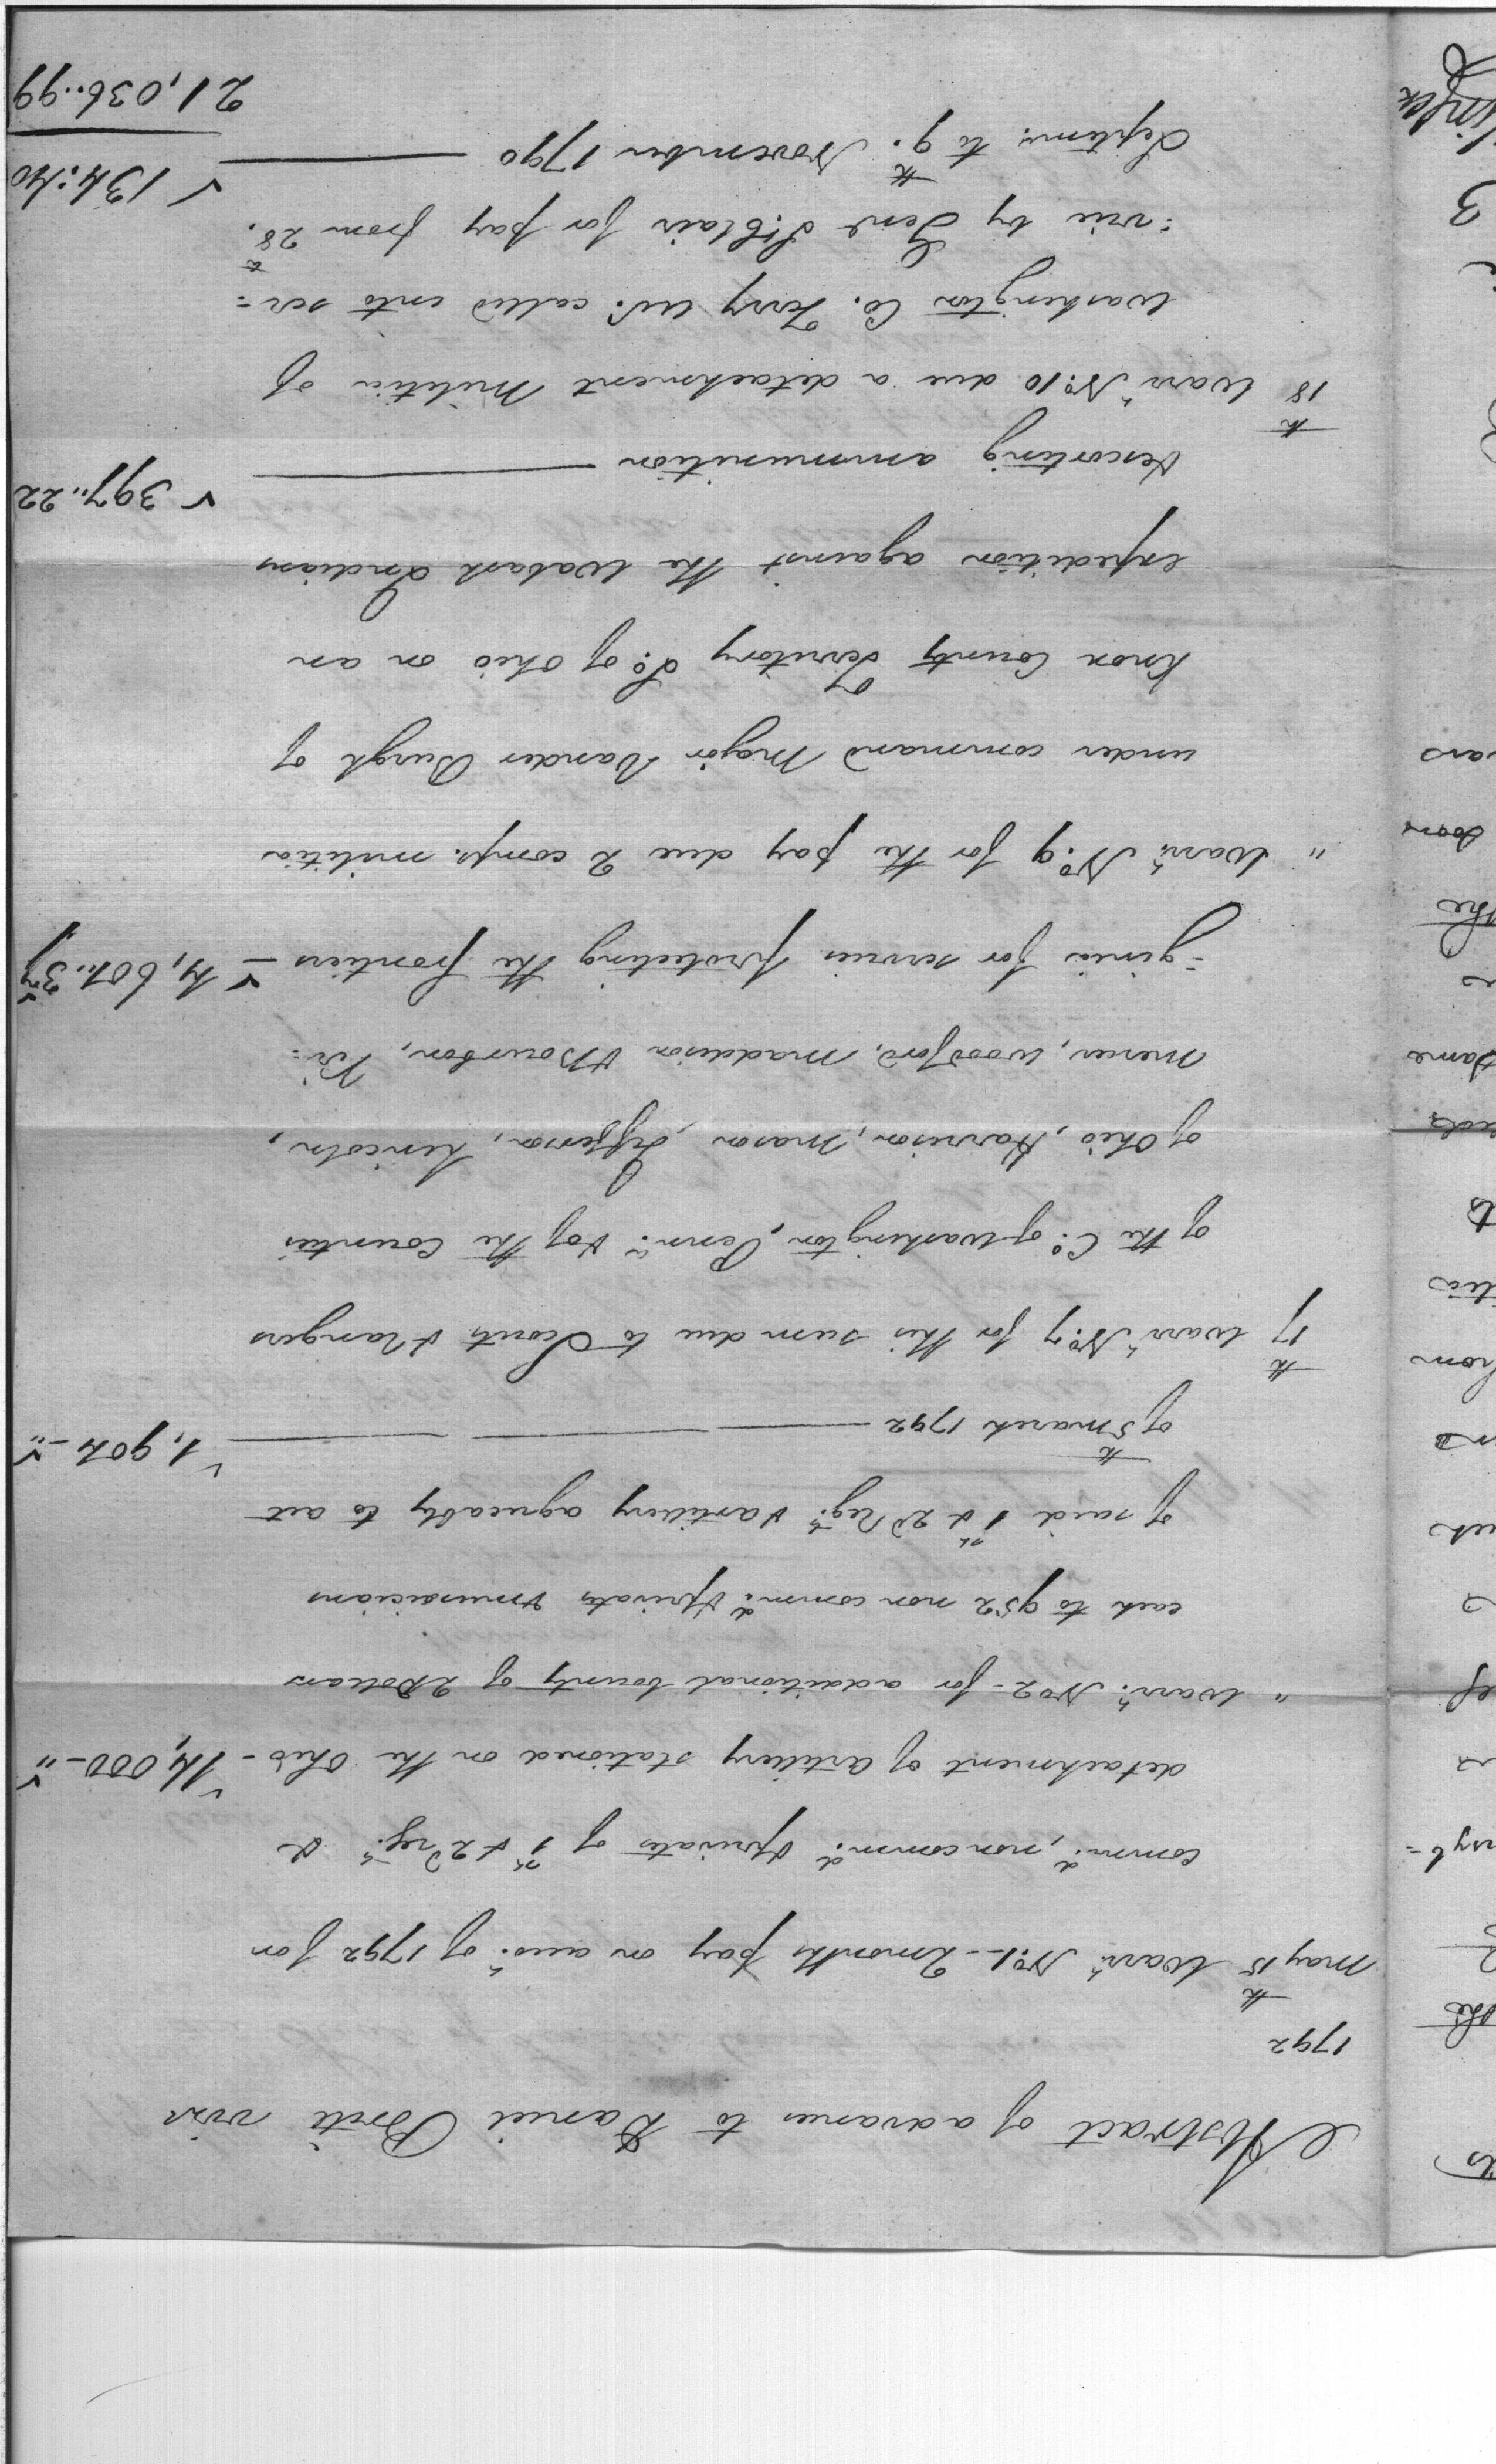 Abstract of advances to Daniel Britt vizt
1792
May 15th Warrt No. 1 - 2 months pay on acct. of 1792 for
commd., non commd. & privates of 1st & 2d regts. &
detachment of artillery stationed on the Ohio - 14,000 - "
" Warrt. No 2 - for additional bounty of 2 Dollars
each to 952 non commd. & privates & musicians
of said 1st & 2d Regts. & artillery agreeably to act
of 5th march 1792 1,904 - "
17th Warrt No. 7 for this sum due to Scouts & Rangers
of the Co. of Washington, Penna. & of the Counties
of Ohio, Harrison, Mason, Jefferson, Lincoln,
Mercer, Woodford, Maddison & Bourbon, Vir=
=ginia for services protecting the frontiers - 4,601..37
" Warrt. No. 9 for the pay due 2 comps. militia
under command Major Vander Burgh of
Knox County Territory So. of Ohio on an
expedition against the Wabash Indians
& escorting ammunition 397..22
18th Warrt No. 10 due a detachment Militia of
Washington Co. Terry. called into ser=
=vice by Genl St. Clair for pay from 28th.
Septemr. to 9th. November 1790 134:40
21,036..99